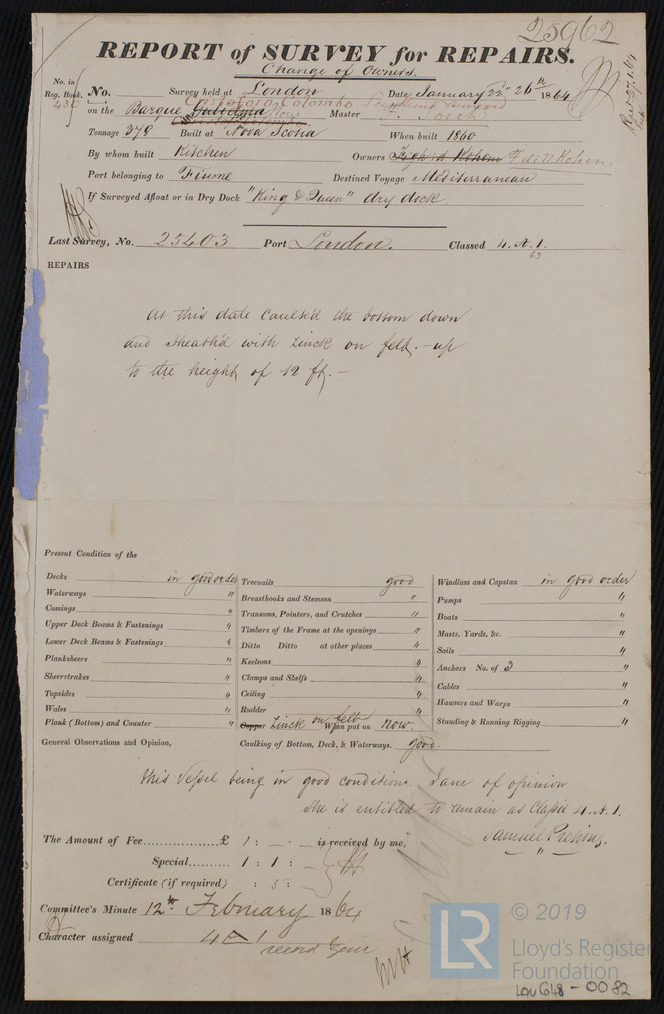 25962
REPORT of SURVEY for REPAIRS.
Change of Owners.
No. in Reg. Book. No. Survey held at London Date, January 22" 26th 1864
430
Cristoforo Colombo
on the Barque Master
Tonnage 279 Built at Nova Scotia When built 1860
By whom built Kitchen Owners
Port belonging to Fiume Destined Voyage Mediterranean
If Surveyed Afloat or in Dry Dock "King & Queen" dry dock
Last Survey, No. 25403 Port London. Classed 4. A. 1.
63
REPAIRS
At this date Caulk'd the bottom down
and Sheath'd with Zinck on felt. - up
to the height of 12 ft. -
Present Condition of the
Decks in good order
Waterways "
Comings "
Upper Deck Beams & Fastenings "
Lower Deck Beams & Fastenings "
Planksheers "
Sheerstrakes "
Topsides "
Wales "
Plank (Bottom) and Counter "
General Observations and Opinion,
Treenails good
Breasthooks and Stemson "
Transoms, Pointers, and Crutches "
Timbers of the Frame at the openings "
Ditto Ditto at other places "
Keelsons "
Clamps and Shelfs "
Ceiling "
Rudder "
Copper Zinck on felt When put on now.
Caulking of Bottom, Deck, & Waterways. good.
Windlass and Capstan in good order
Pumps "
Boats "
Masts, Yards, &c. "
Sails "
Anchors No. of 3 "
Cables "
Hawsers and Warps "
Standing & Running Rigging "
This Vessel being in good condition. I am of opinion
she is entitled to remain as Class'd 4. A. 1.
The Amount of Fee £ 1 : - : - is received by me, Samuel
Special 1 : 1 :
Certificate (if required) : 5 :
Committee's Minute 12th February 1864
Character assigned 4 A 1
record Zinc
© 2019
LR
Lloyd's Register
Foundation
LON 648 - 0082